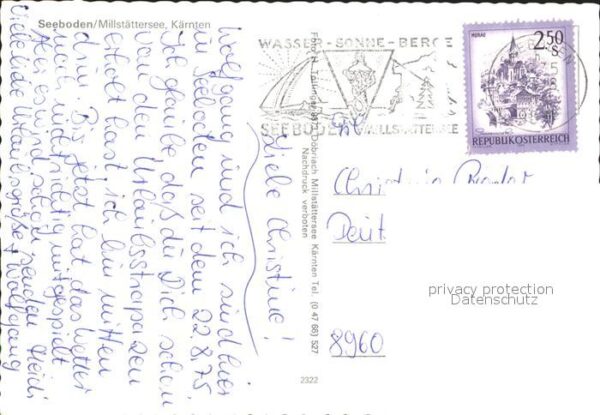 Seeboden/Millstättersee, Kärnten
WASSER - SONNE - BERGE
SEEBODEN MILLSTÄTTERSEE
MURAU
2.50
S
REPUBLIK ÖSTERREICH
Döbriach Millstättersee Kärnten Tel. (0 47 66) 527
Nachdruck verboten
Liebe Christine!
Wolfgang und ich sind hier
in Seeboden seit dem 22.8.75.
Ich glaube daß du Dich schon
von den Urlaubsstrapazen
erholt hast, ich bin mitten
drin. Bis jetzt hat das Wetter
noch nicht richtig mitgespielt
Aber es wird schon werden
Viele liebe Urlaubsgrüße, Wolfgang
Heidi
Christine
8960
privacy protection
Datenschutz
2322